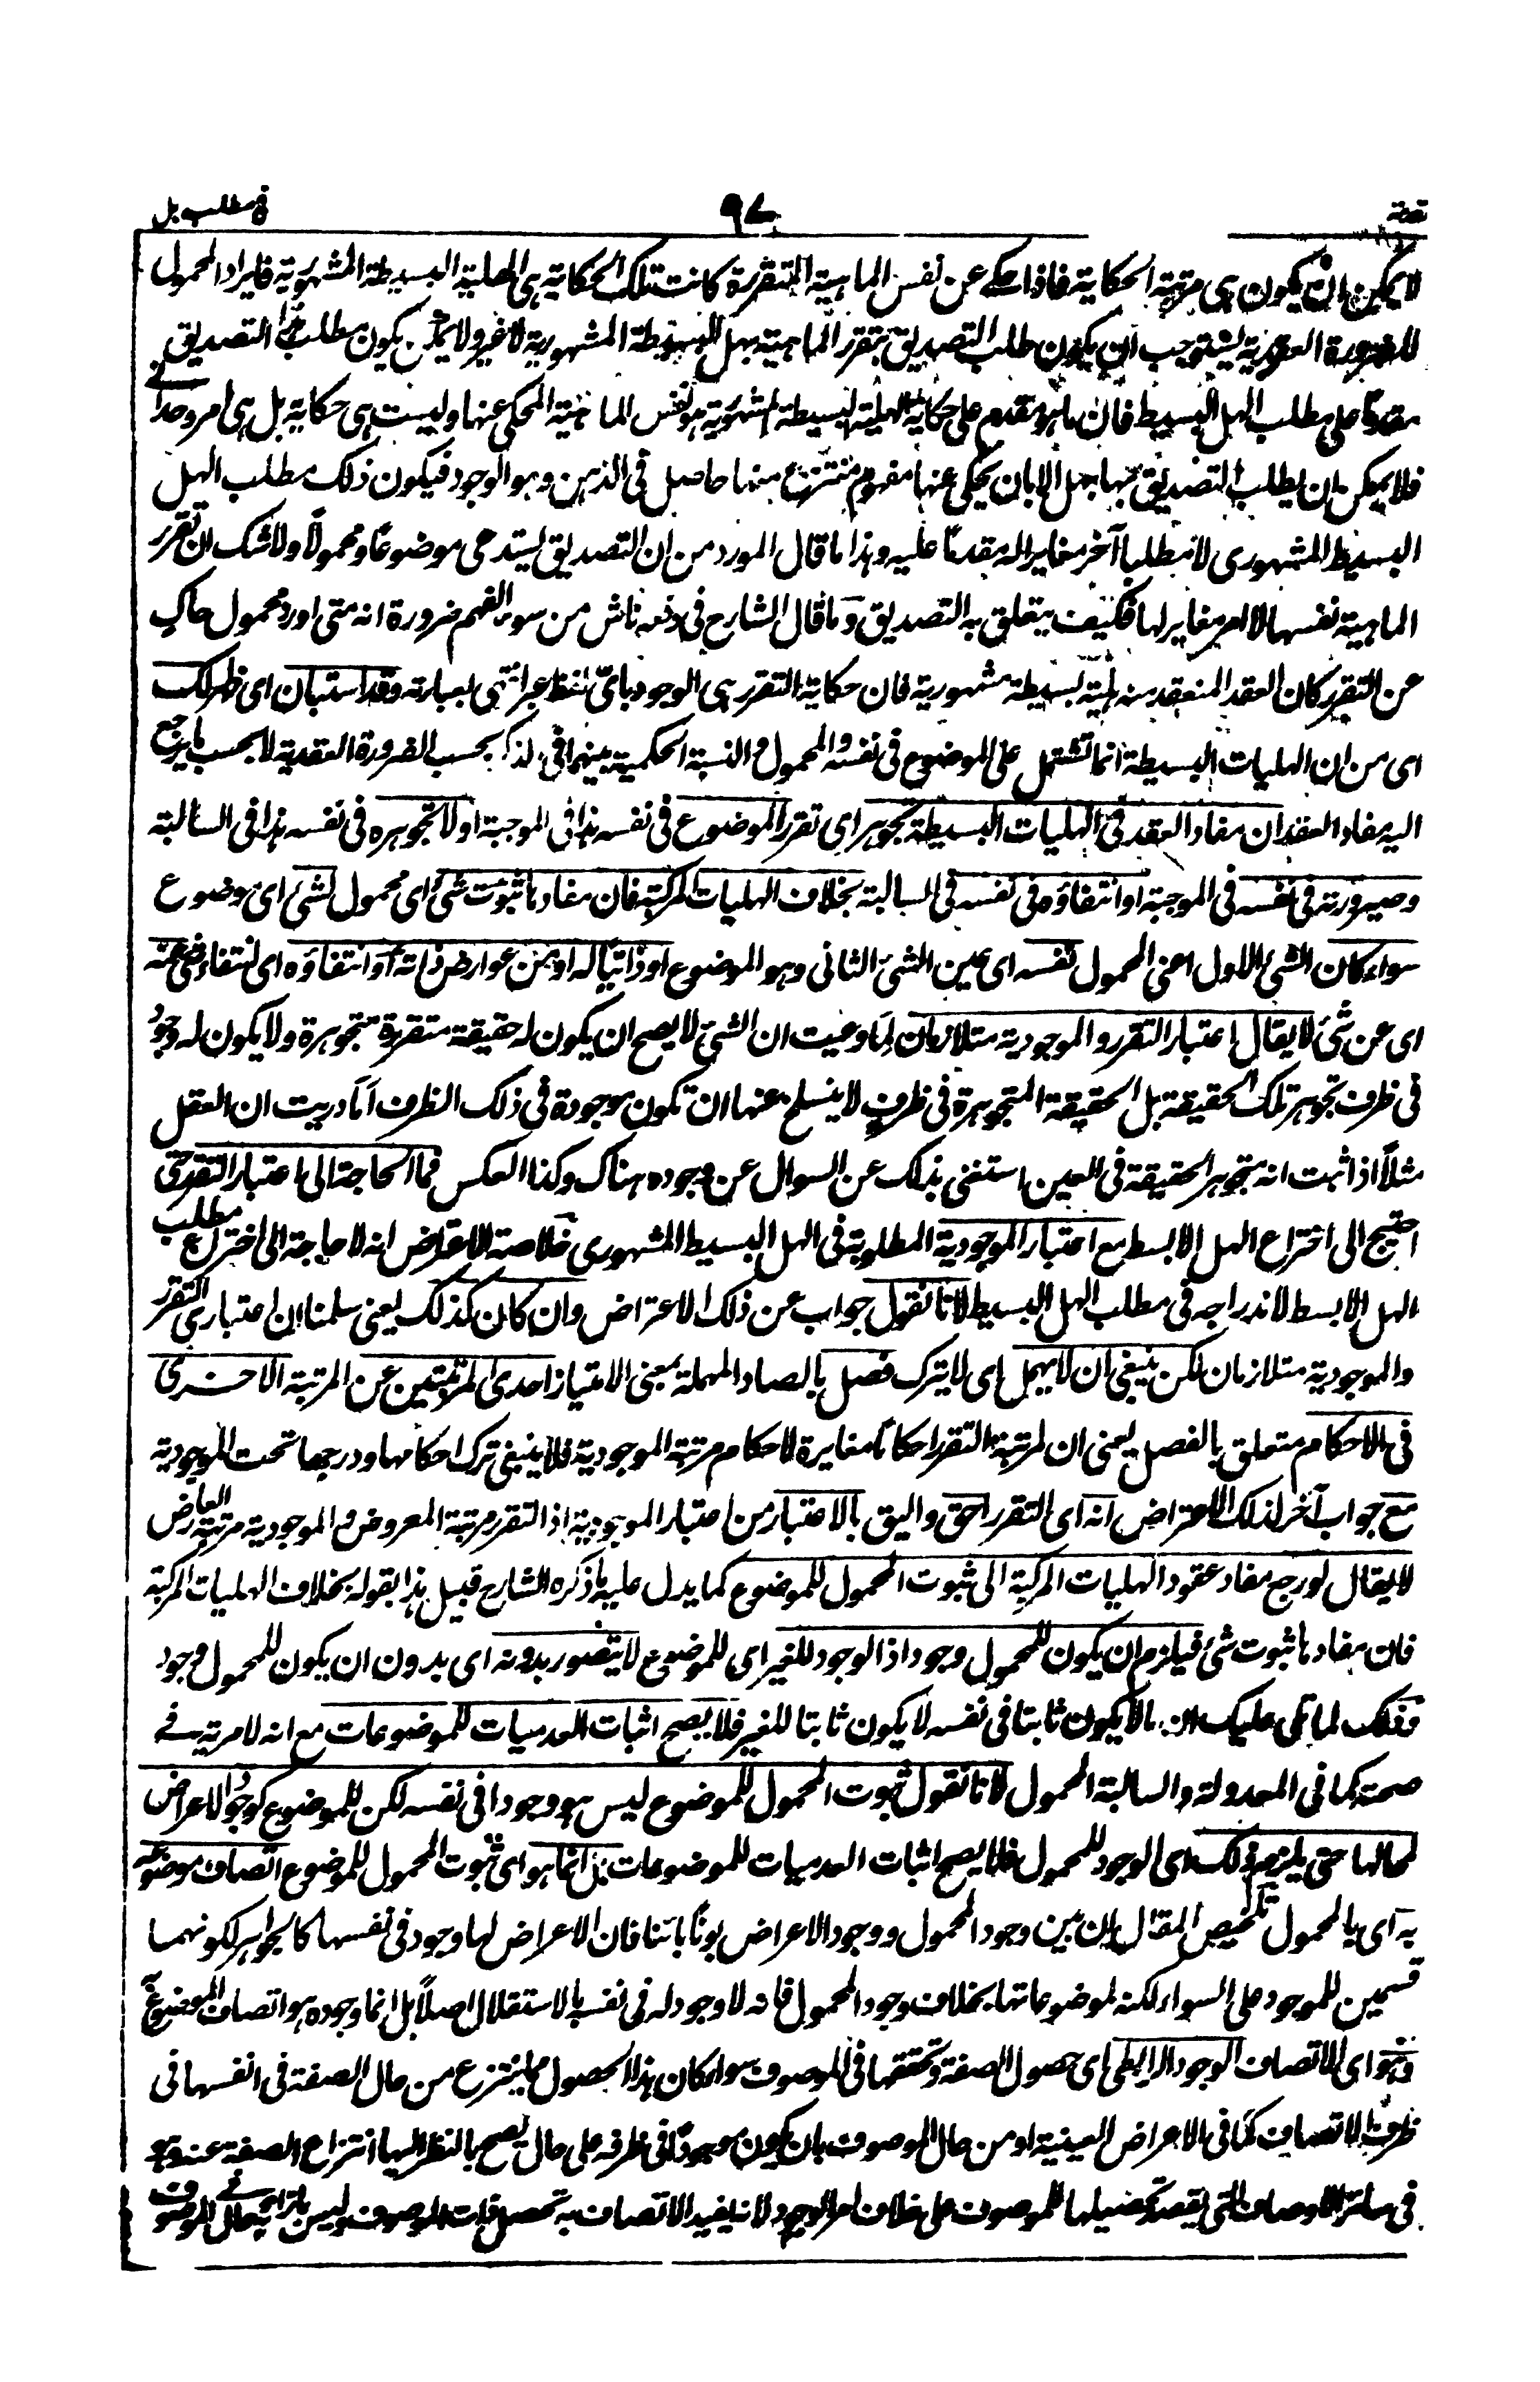 فى مطلب هل
٩٧
لا يمكن ان يكون هى مرتبة الحكاية فاذا حكى عن نفس الماهية المتقررة كانت تلك الحكاية هى الهلية البسيطة المشهورية فايراد المحمول
للضرورة العقدية يستوجب ان يكون طلب التصديق بتقرر الماهية بهل البسيطة المشهورية لا غير ولا يمكن يكون مطلب هذا التصديق
مقدما على مطلب الهل البسيط فان ما هو مقدم على حكاية الهلية البسيطة المشهورية هو نفس الماهية المحكى عنها وليست هى حكاية بل هى امر وحدانى
فلا يمكن ان يطلب التصديق بها بهل الا بان يحكى عنها مفهوم منتزع منها حاصل فى الذهن وهو الوجود فيكون ذلك مطلب الهل
البسيط المشهورى لا مطلبا آخر مغايرا له مقدمًا عليه وهذا ما قال المورد من ان التصديق يستدعى موضوعًا ومحمولًا ولا شك ان تقرر
الماهية نفسها لا امر مغاير لها فكيف يتعلق به التصديق وما قال الشارح فى دفعه ناش من سوء الفهم ضرورة انه متى اورد محمول حاكٍ
عن التقرر كان العقد المنعقد منه هلية بسيطة مشهورية فان حكاية التقرر هى الوجود باىّ لفظ عبر انتهى بعبارته وقد استبان اى ظهر لك
اى من ان الهليات البسيطة انما تشتمل على الموضوع فى نفسه والمحمول والنسبة الحكمية بينهما فى الذكر بحسب الضرورة العقدية لا بحسب ما يرجع
اليه مفاد العقد ان مفاد العقد فى الهليات البسيطة تجوهر اى تقرر الموضوع فى نفسه هذا فى الموجبة او لا تجوهره فى نفسه هذا فى السالبة
وصيرورته فى نفسه فى الموجبة او انتفاؤه فى نفسه فى السالبة بخلاف الهليات المركبة فان مفادها ثبوت شئ اى محمول لشئ اى موضوع
سواء كان الشئ الاول اعنى المحمول نفسه اى عين الشئ الثانى وهو الموضوع او ذاتيًا له او من عوارض ذاته او انتفاؤه اى انتفاء شئ عنه
اى عن شئ لا يقال اعتبار التقرر والموجودية متلازمان لما وعيت ان الشئ لا يصح ان يكون له حقيقة متقررة متجوهرة ولا يكون له وجود
فى ظرف تجوهر تلك الحقيقة بل الحقيقة المتجوهرة فى ظرفٍ لا ينسلخ عنها ان تكون موجودة فى ذلك الظرف اما دريت ان العقل
مثلًا اذا ثبت انه متجوهر الحقيقة فى العين استغنى بذلك عن السوال عن وجوده هناك وكذا العكس فما الحاجة الى اعتبار التقرر حتى
احتيج الى اختراع الهل الابسط مع اعتبار الموجودية المطلوبة فى الهل البسيط المشهورى خلاصة الاعتراض انه لا حاجة الى اختراع مطلب
الهل الابسط لاندراجه فى مطلب الهل البسيط لانا نقول جواب عن ذلك الاعتراض وان كان كذلك يعنى سلمنا ان اعتبارى التقرر
والموجودية متلازمان لكن ينبغى ان لا يهمل اى لا يترك فصل بالصاد المهملة بمعنى الامتياز احدى المرتبتين عن المرتبة الاخرى
فى الاحكام متعلق بالفصل يعنى ان لمرتبة التقرر احكامًا مغايرة لاحكام مرتبة الموجودية فلا ينبغى ترك احكامها ودرجها تحت الموجودية
مع جواب آخر لذلك الاعتراض انه اى التقرر احق واليق بالاعتبار من اعتبار الموجودية اذ التقرر مرتبة المعروض والموجودية مرتبة العارض
لا يقال لو رجع مفاد عقود الهليات المركبة الى ثبوت المحمول للموضوع كما يدل عليه ما ذكره الشارح قبيل هذا بقوله بخلاف الهليات المركبة
فان مفادها ثبوت شئ فيلزم ان يكون للمحمول وجود اذ الوجود للغير اى للموضوع لا يتصور بدونه اى بدون ان يكون للمحمول وجود
وذلك لما تلى عليك ان ما لا يكون ثابتا فى نفسه لا يكون ثابتا للغير فلا يصح اثبات العدميات للموضوعات مع انه لا مرية فى
صحته كما فى المعدولة والسالبة المحمول لانا نقول ثبوت المحمول للموضوع ليس هو وجودا فى نفسه لكن للموضوع كوجود الاعراض
لمحالها حتى يلزم ذلك اى الوجود للمحمول فلا يصح اثبات العدميات للموضوعات بل انما هو اى ثبوت المحمول للموضوع اتصاف موضوعه
به اى بالمحمول تلخيص المقال ان بين وجود المحمول ووجود الاعراض بونًا بائنا فان الاعراض لها وجود فى نفسها كالجواهر لكونهما
قسمين للموجود على السواء لكنه لموضوعاتها بخلاف وجود المحمول فانه لا وجود له فى نفسه بالاستقلال اصلًا بل انما وجوده هو اتصاف الموضوع به
وهو اى الاتصاف الوجود الرابطى اى حصول الصفة وتحققها فى الموصوف سواء كان هذا الحصول مما ينتزع من حال الصفة فى انفسها فى
ظرف الاتصاف كما فى الاعراض العينية او من حال الموصوف بان يكون موجودًا فى ظرفه على حال يصح بالنظر اليها انتزاع الصفة عنه وهو
فى سائر الاوصاف التى يقصد تحصيلها للموصوف على خلاف امر الوجود لانه يفيد الاتصاف به تحصل ذات الموصوف وليس